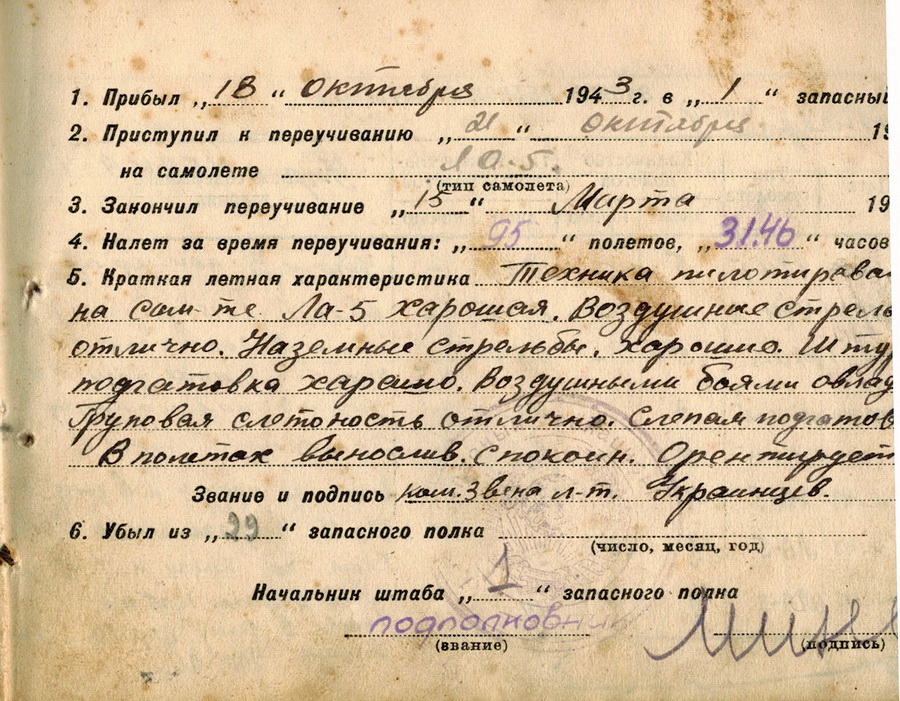 1. Прибыл „18“ октября 1943 г. в „1“ запасный
2. Приступил к переучиванию „21“ октября 19
на самолете Ла-5.
(тип самолета)
3. Закончил переучивание „15“ Марта 19
4. Налет за время переучивания: „95“ полетов, „31.46“ часов
5. Краткая летная характеристика Техника пилотирова
на сам-те Ла-5 харошая. Воздушные стрель
отлично. Наземные стрельбы. харошо. Штур
подгатовка харашо. Воздушными боями овлад
Груповая слетоность отлично. Слепая подгатов
В полетах вынослив. спокоин. Орентирует
Звание и подпись ком. звена л-т. Украинцев.
6. Убыл из „99“ запасного полка
(число, месяц, год)
Начальник штаба „1“ запасного полка
подполковник
(звание) (подпись)